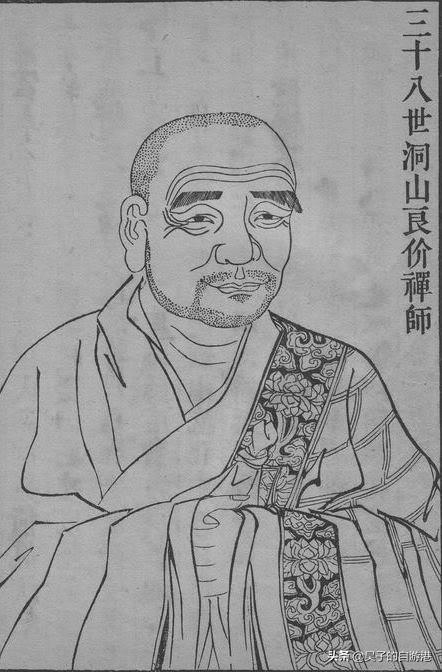 三十八世洞山良价禪師
头条 @昃子的自游港